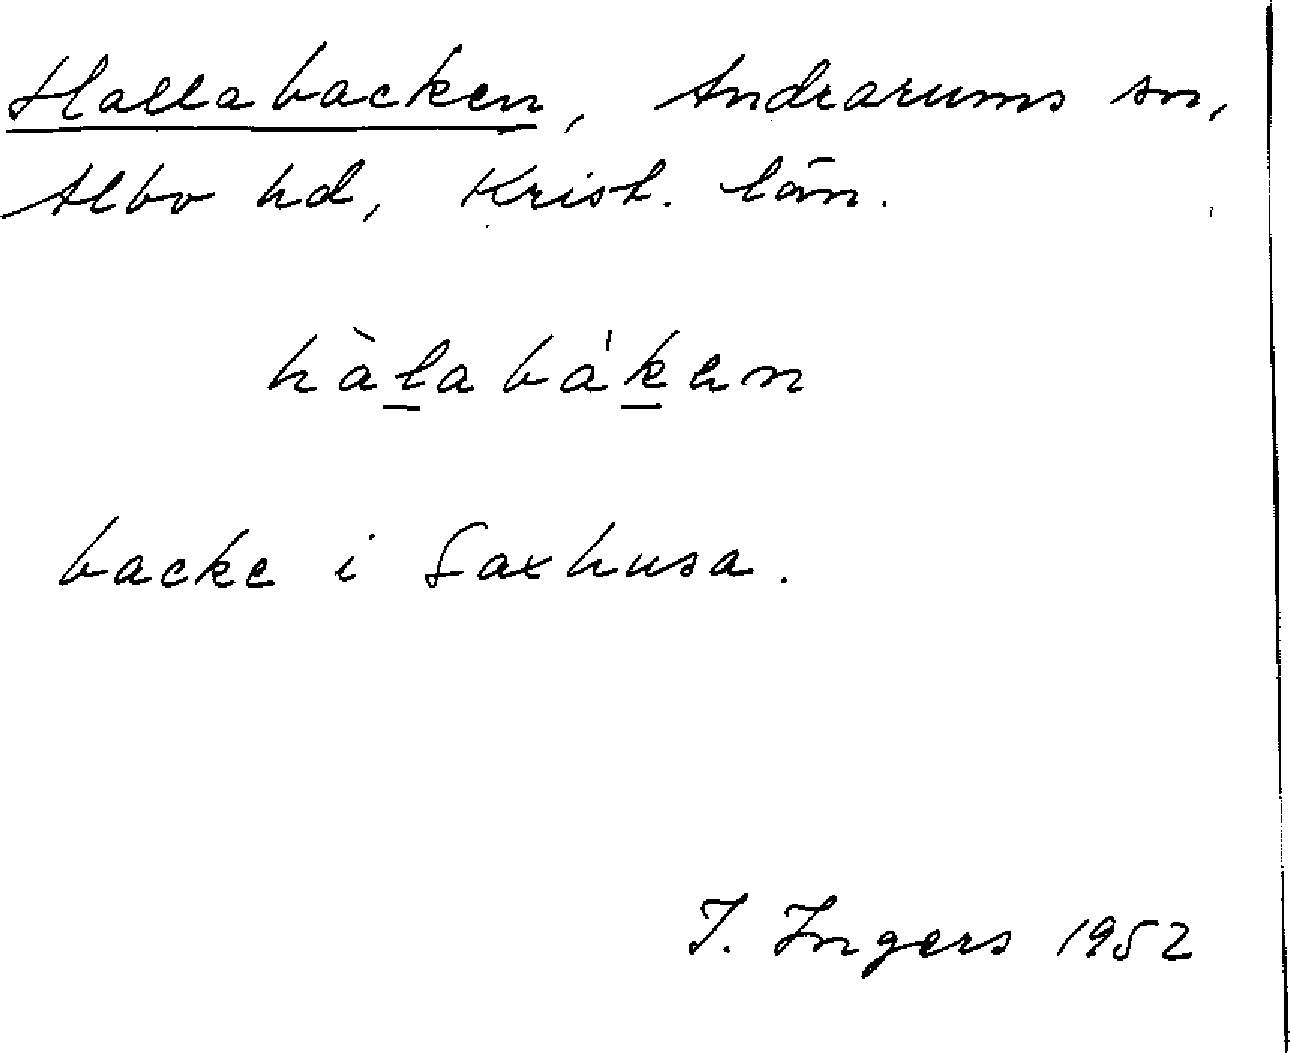 Hallabacken, Andrarums sn,
Albo hd, Krist. län.
hàl̲abák̲en
backe i Saxhusa.
I. Ingers 1952